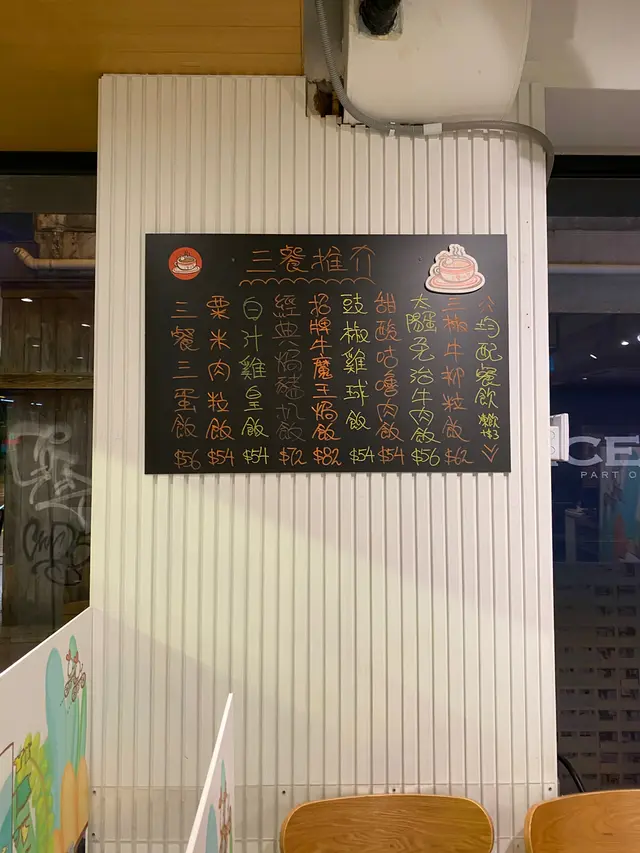 三餐推介
三餐三蛋飯 $56
粟米肉粒飯 $54
白汁雞皇飯 $54
經典焗豬扒飯 $72
招牌牛魔王焗飯 $82
豉椒雞球飯 $54
甜酸咕嚕肉飯 $54
太陽蛋免治牛肉飯 $56
三椒牛柳粒飯 $62
均配餐飲 凍飲+$3
CE
PART O